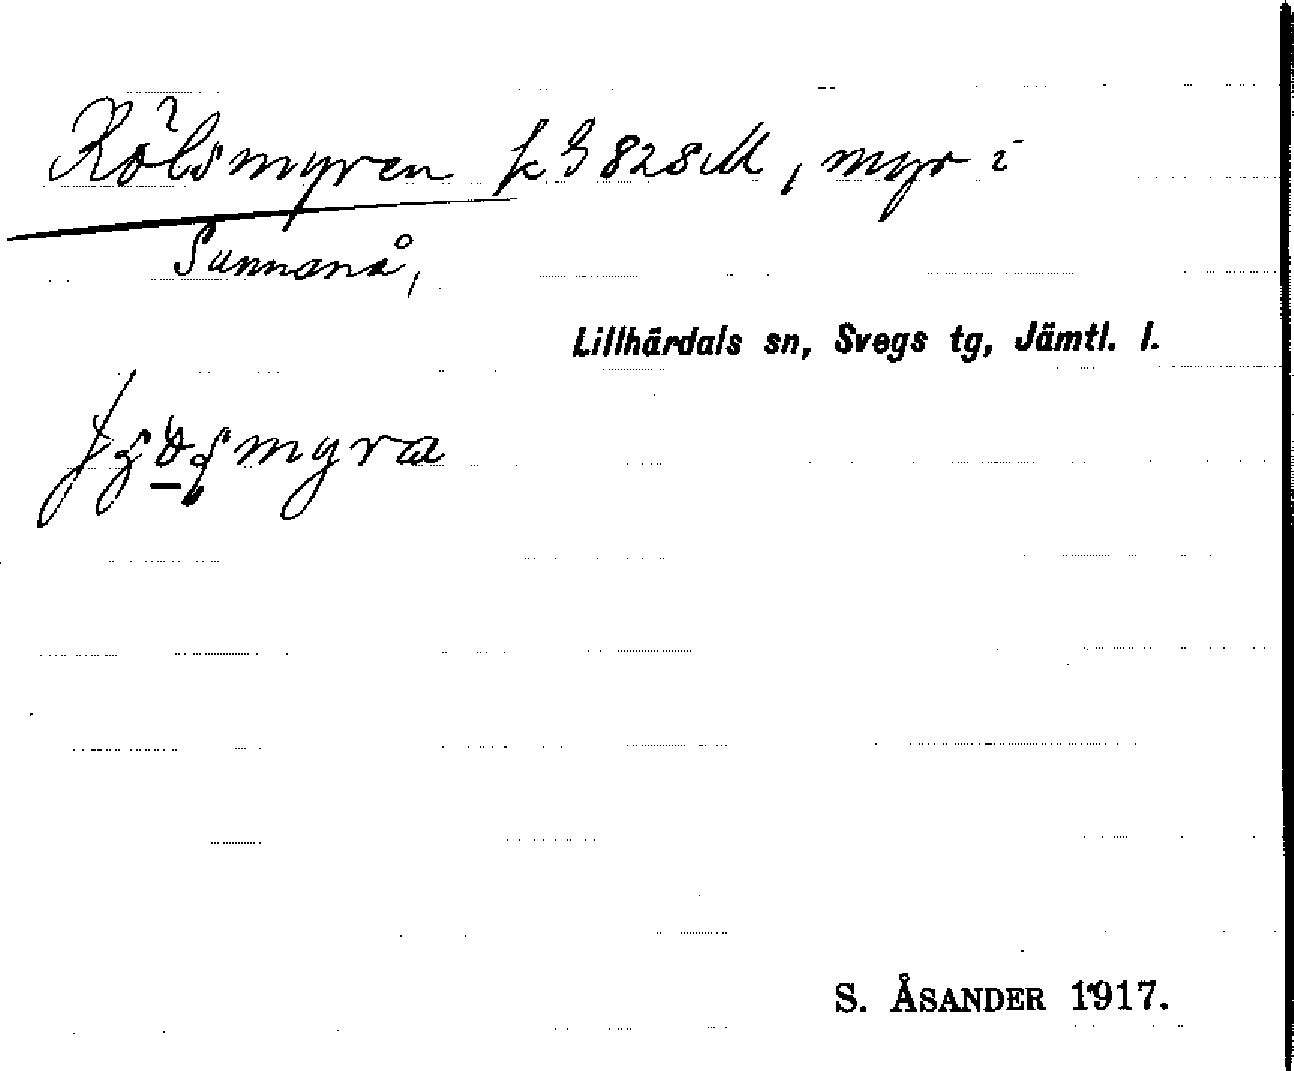 Kölsmyren k З 828 M, myr i
Sunnanå,
Lillhärdals sn, Svegs tg, Jämtl. l.
myra
S. ÅSANDER 1917.